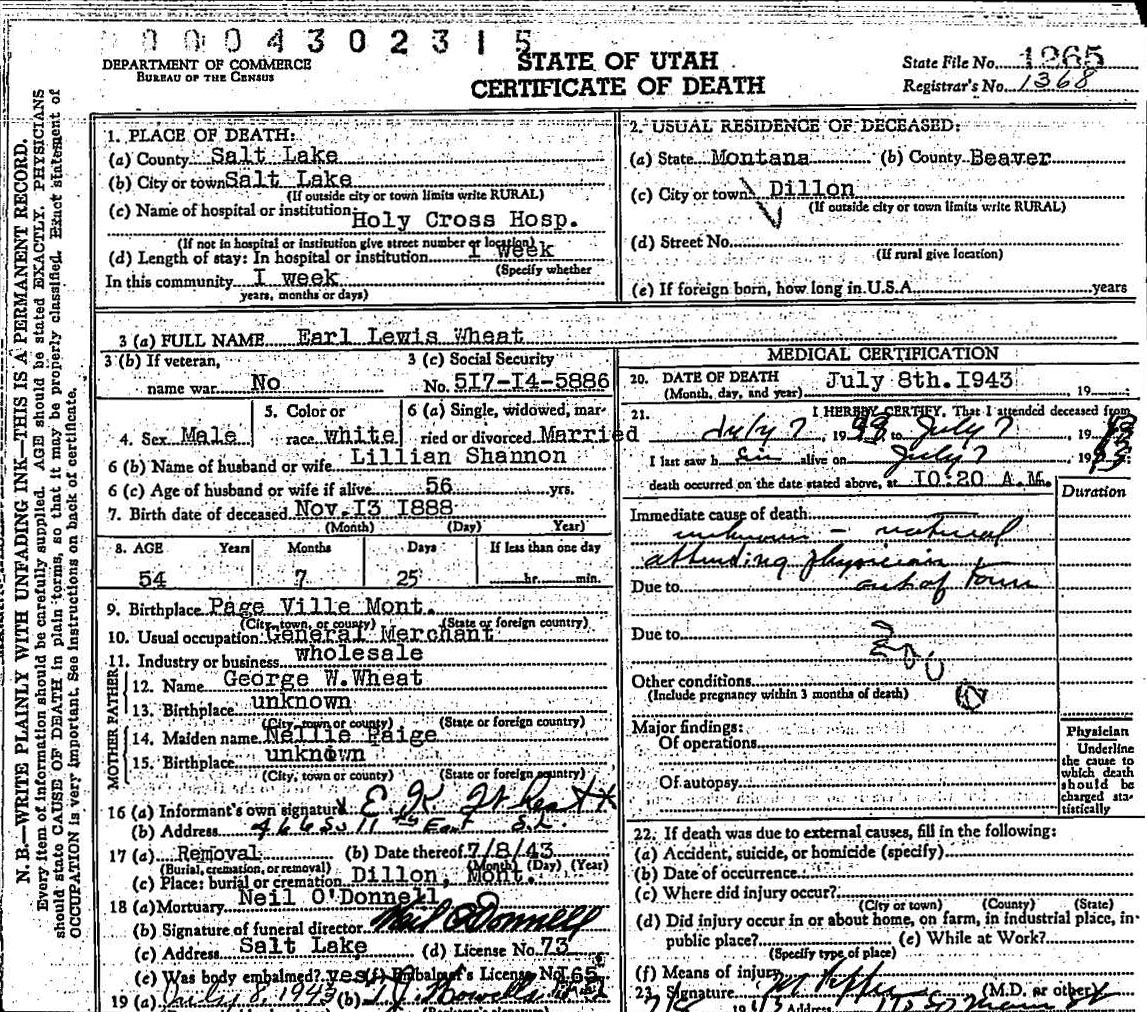 00004302315
DEPARTMENT OF COMMERCE
BUREAU OF THE CENSUS
STATE OF UTAH
CERTIFICATE OF DEATH
State File No. 1265
Registrar's No. 1368
N. B.—WRITE PLAINLY WITH UNFADING INK—THIS IS A PERMANENT RECORD.
Every item of information should be carefully supplied. AGE should be stated EXACTLY. PHYSICIANS
should state CAUSE OF DEATH in plain terms, so that it may be properly classified. Exact statement of
OCCUPATION is very important. See instructions on back of certificate.
1. PLACE OF DEATH:
(a) County Salt Lake
(b) City or town Salt Lake
(If outside city or town limits write RURAL)
(c) Name of hospital or institution: Holy Cross Hosp.
(If not in hospital or institution give street number or location)
(d) Length of stay: In hospital or institution I week
(Specify whether
In this community I week
years, months or days)
2. USUAL RESIDENCE OF DECEASED:
(a) State Montana (b) County Beaver
(c) City or town Dillon
(If outside city or town limits write RURAL)
(d) Street No.
(If rural give location)
(e) If foreign born, how long in U.S.A. years
3 (a) FULL NAME Earl Lewis Wheat
3 (b) If veteran, 3 (c) Social Security
name war No No. 5I7-I4-5886
5. Color or 6 (a) Single, widowed, mar-
4. Sex Male race white ried or divorced Married
6 (b) Name of husband or wife Lillian Shannon
6 (c) Age of husband or wife if alive 56 yrs.
7. Birth date of deceased Nov. I3 I888
(Month) (Day) Year)
8. AGE Years Months Days If less than one day
54 7 25 hr. min.
9. Birthplace Page Ville Mont.
(City, town, or county) (State or foreign country)
10. Usual occupation General Merchant
11. Industry or business wholesale
FATHER
12. Name George W. Wheat
13. Birthplace unknown
(City, town or county) (State or foreign country)
MOTHER
14. Maiden name Nellie Paige
15. Birthplace unknown
(City, town or county) (State or foreign country)
16 (a) Informant's own signature E. K. Wheat
(b) Address 466 So 11th East S.L.
17 (a) Removal (b) Date thereof 7/8/43
(Burial, cremation, or removal) (Month) (Day) (Year)
(c) Place: burial or cremation Dillon, Mont.
18 (a) Mortuary Neil O'Donnell
(b) Signature of funeral director Neil O'Donnell
(c) Address Salt Lake (d) License No. 73
(e) Was body embalmed? yes (f) Embalmer's License No. I65
19 (a) July 8, 1943 (b)
MEDICAL CERTIFICATION
20. DATE OF DEATH July 8th. I943 19
(Month, day, and year)
21. I HEREBY CERTIFY, That I attended deceased from
July 7, 1943 to July 7, 1943
I last saw h alive on July 7, 1943
death occurred on the date stated above, at IO:20 A.M.
Duration
Immediate cause of death
unknown - natural
attending physician
Due to out of town
Due to
Other conditions
(Include pregnancy within 3 months of death)
Major findings:
Of operations
Of autopsy
Physician
Underline
the cause to
which death
should be
charged sta-
tistically
22. If death was due to external causes, fill in the following:
(a) Accident, suicide, or homicide (specify)
(b) Date of occurrence
(c) Where did injury occur?
(City or town) (County) (State)
(d) Did injury occur in or about home, on farm, in industrial place, in
public place? (e) While at Work?
(Specify type of place)
(f) Means of injury
23. Signature (M.D. or other)
Address